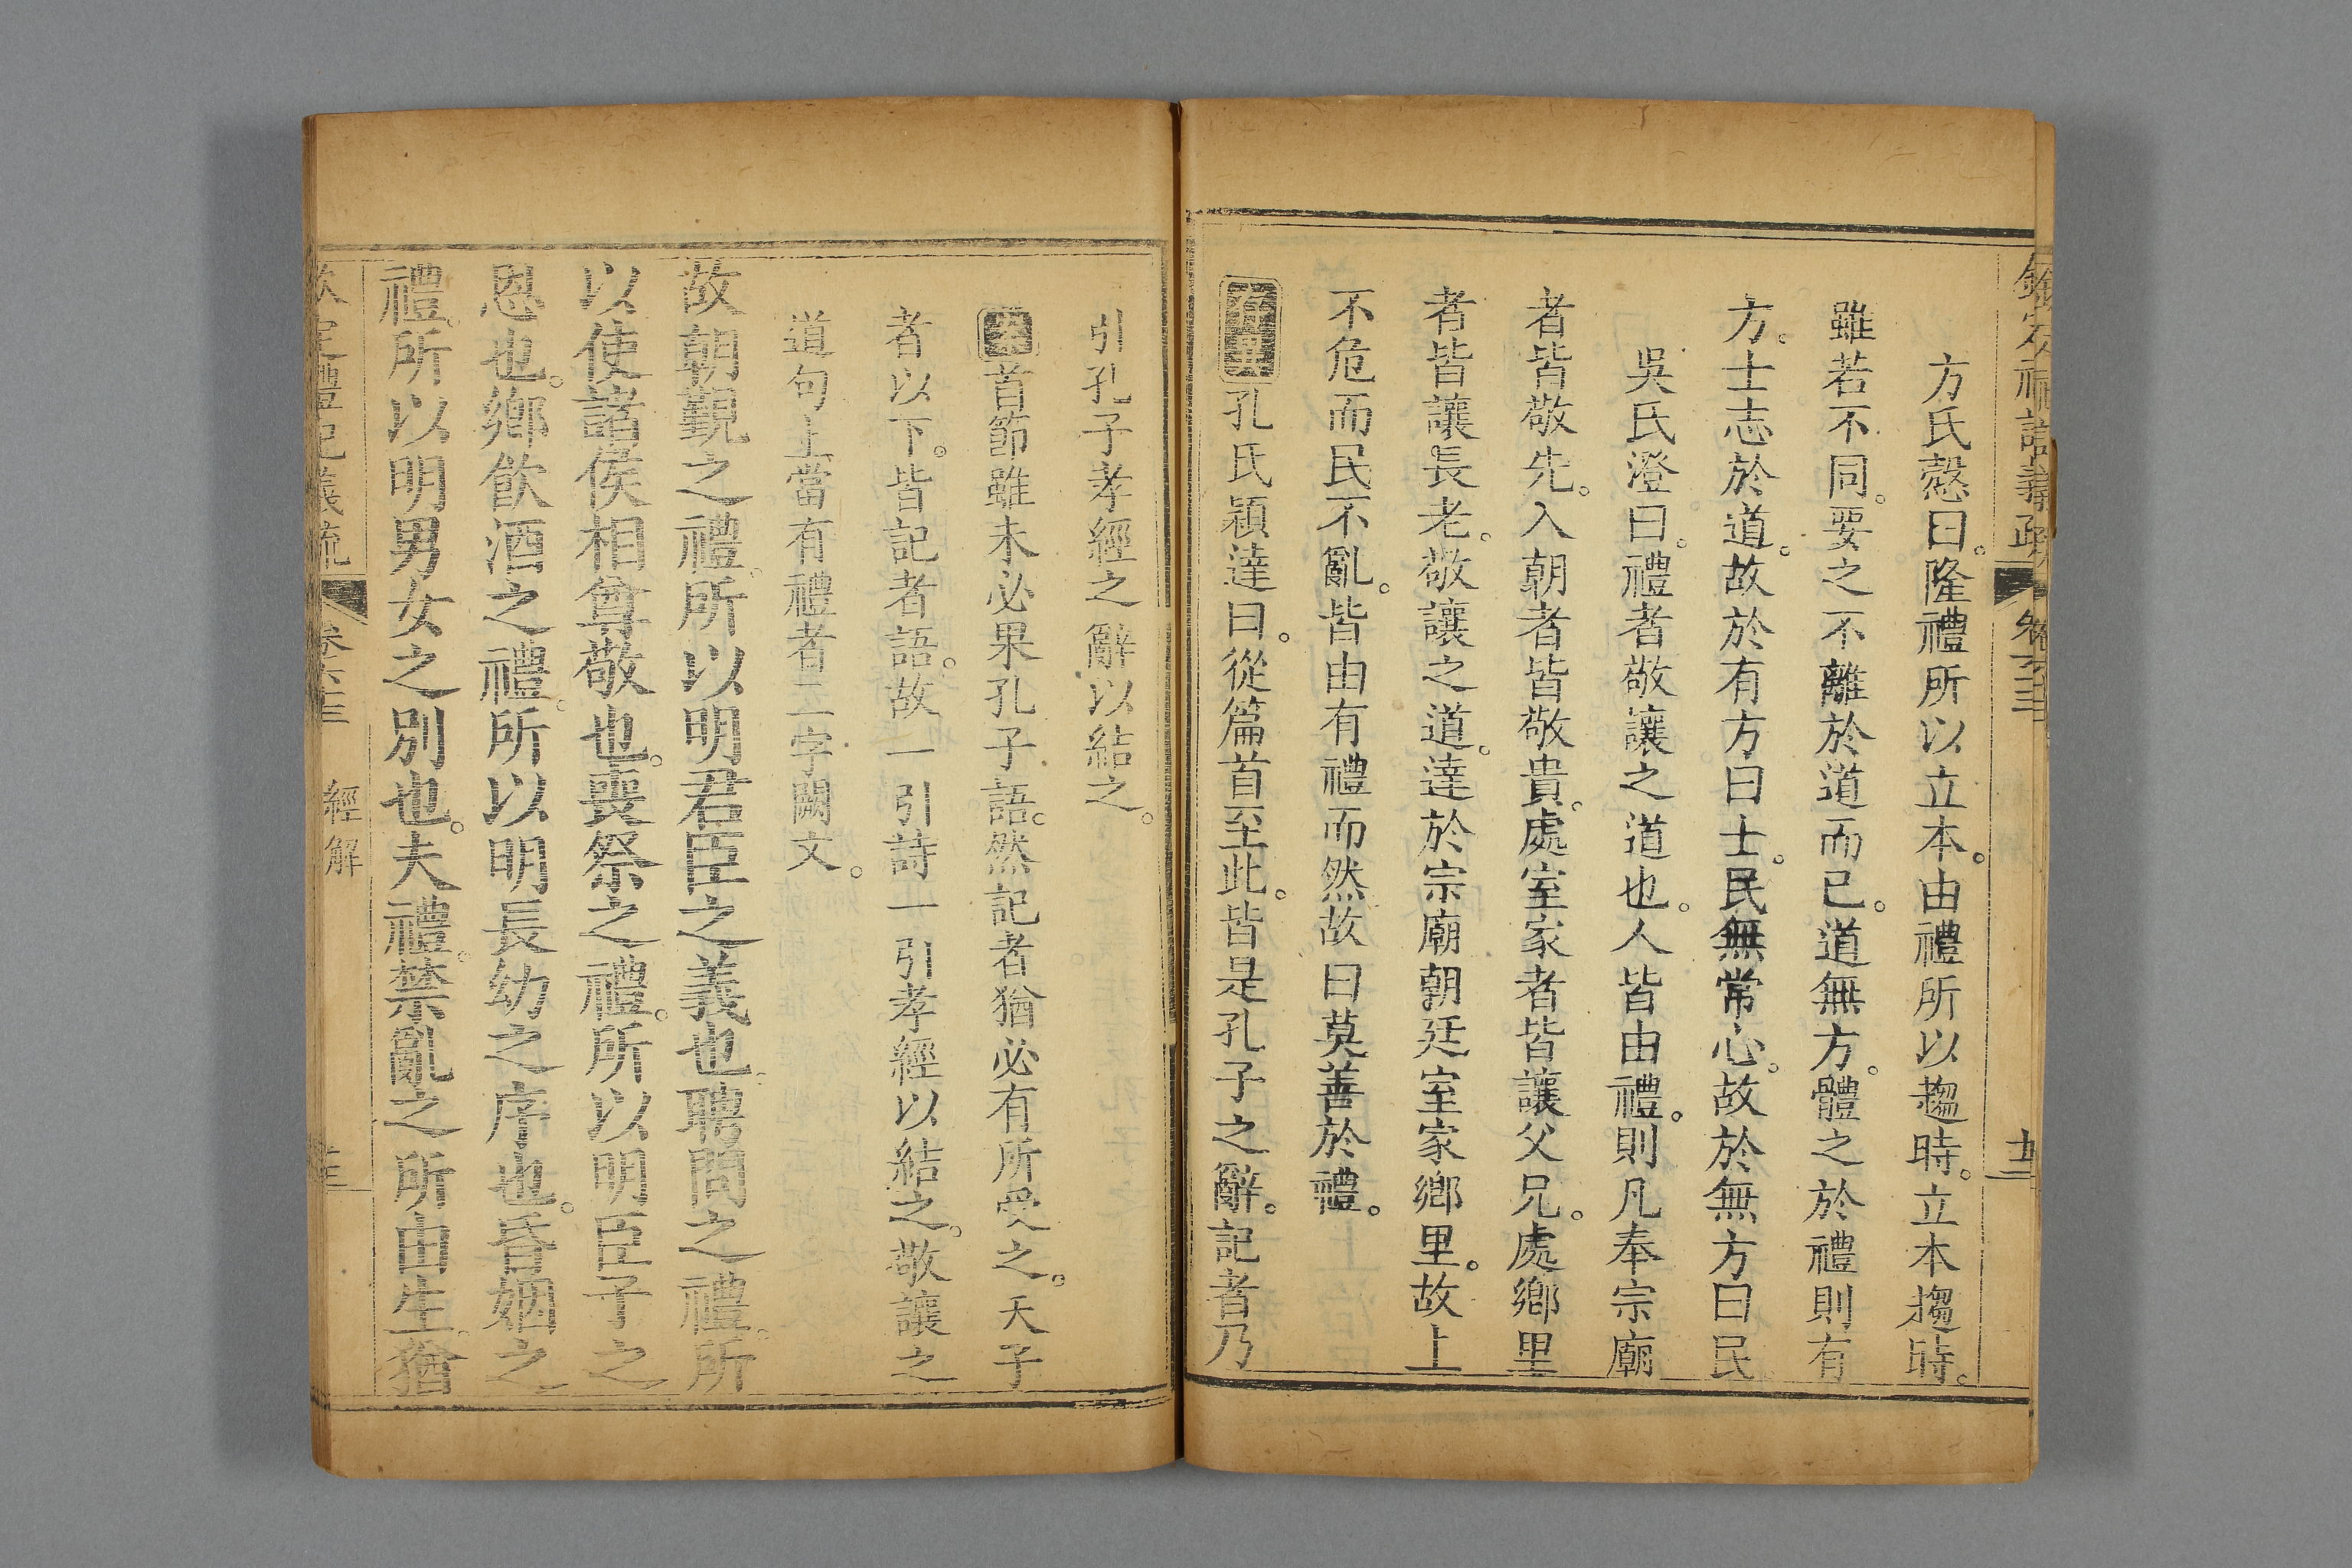 方氏慤曰。隆禮所以立本。由禮所以趨時。立本趨時。
雖若不同。要之不離於道而已。道無方。體之於禮則有
方。士志於道。故於有方曰士。民無常心。故於無方曰民
吳氏澄曰。禮者敬讓之道也。人皆由禮。則凡奉宗廟
者皆敬先。入朝者皆敬貴。處室家者皆讓父兄。處鄉里
者皆讓長老。敬讓之道。達於宗廟朝廷室家鄉里。故上
不危而民不亂。皆由有禮而然故曰莫善於禮。
孔氏穎達曰。從篇首至此。皆是孔子之辭。記者乃
引孔子孝經之辭以結之。
首節雖未必果孔子語。然記者猶必有所受之。天子
者以下。皆記者語。故一引詩一引孝經以結之。敬讓之
道句上當有禮者二字闕文。
故朝覲之禮。所以明君臣之義也。聘問之禮。所
以使諸侯相尊敬也。喪祭之禮。所以明臣子之
恩也。鄉飲酒之禮。所以明長幼之序也。昏姻之
禮。所以明男女之別也。夫禮。禁亂之所由生。猶
欽定禮記義疏 卷六十三 經解